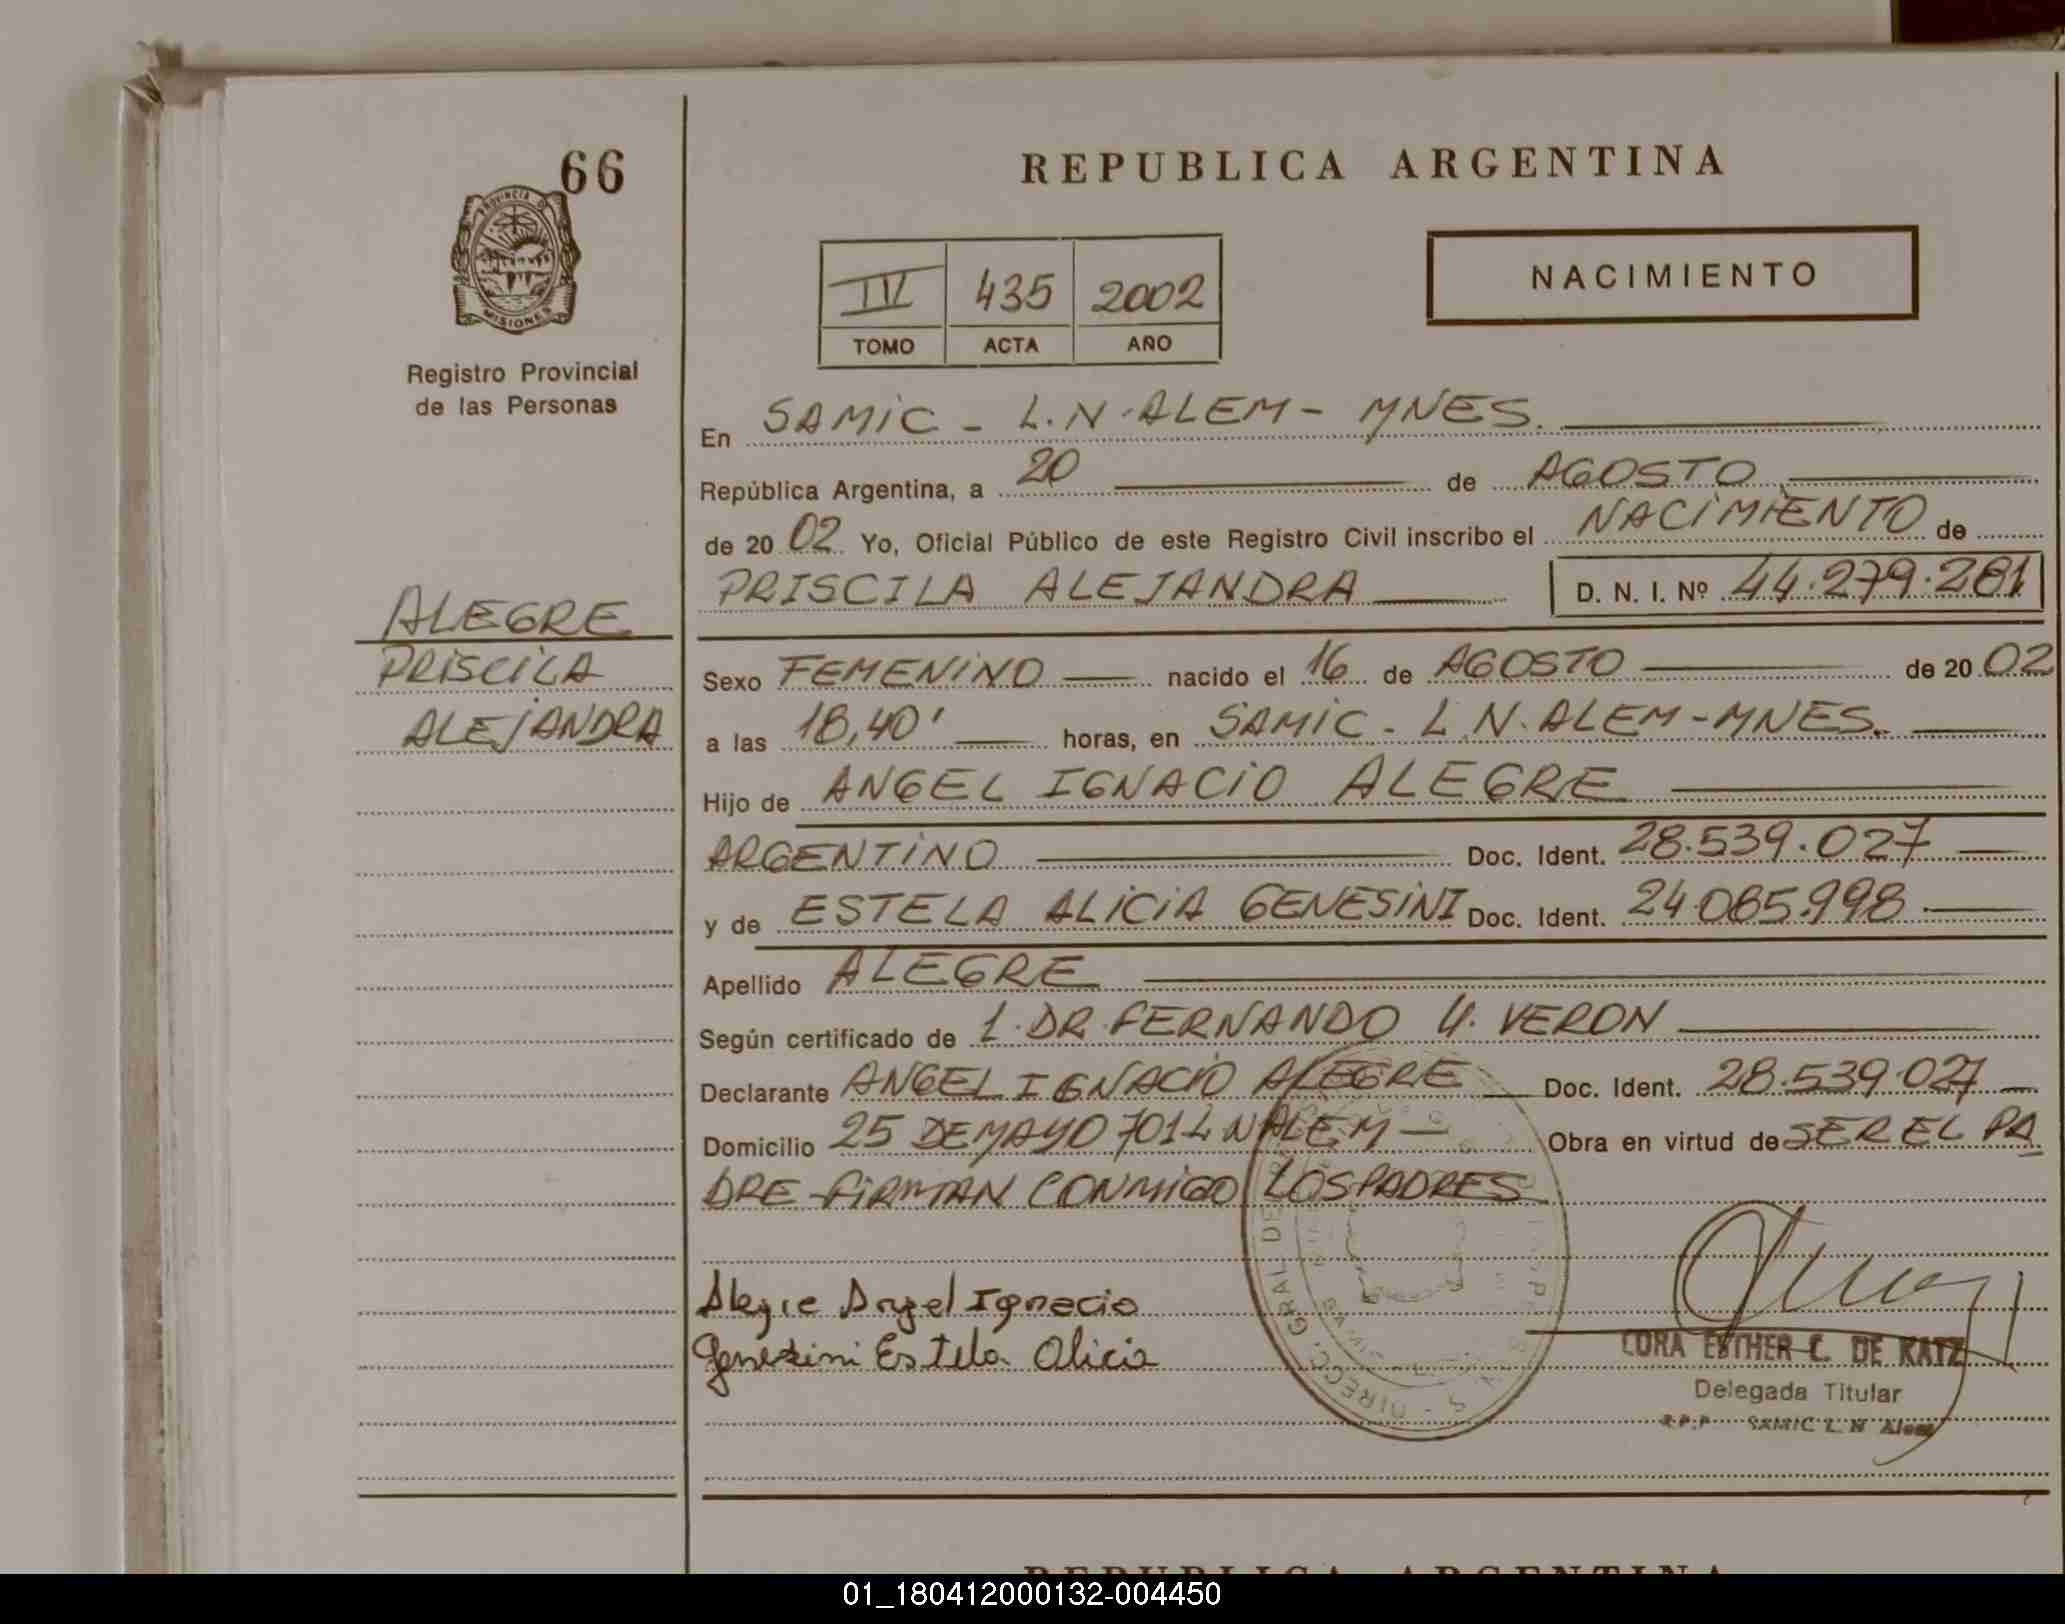 66
REPUBLICA ARGENTINA
PROVINCIA DE
MISIONES
Registro Provincial
de las Personas
IV 435 2002
TOMO ACTA AÑO
NACIMIENTO
En SAMIC - L.N.ALEM - MNES.
República Argentina, a 20 de AGOSTO
de 20 02 Yo, Oficial Público de este Registro Civil inscribo el NACIMIENTO de
PRISCILA ALEJANDRA D. N. I. Nº 44.279.281
ALEGRE
PRISCILA
ALEJANDRA
Sexo FEMENINO nacido el 16 de AGOSTO de 20 02
a las 18,40' horas, en SAMIC - L.N. ALEM - MNES.
Hijo de ANGEL IGNACIO ALEGRE
ARGENTINO Doc. Ident. 28.539.027
y de ESTELA ALICIA GENESINI Doc. Ident. 24.085.998
Apellido ALEGRE
Según certificado de 1. DR. FERNANDO U. VERON
Declarante ANGEL IGNACIO ALEGRE Doc. Ident. 28.539.027
Domicilio 25 DE MAYO 701 L N ALEM - Obra en virtud de SER EL PA
DRE - FIRMAN CONMIGO LOS PADRES
Alegre Angel Ignacio
Genesini Estela Alicia
CORA ESTHER C. DE KATZ
Delegada Titular
R.P.P SAMIC L. N Alem
DIRECC. GRAL DE
REPUBLICA ARGENTINA
01_180412000132-004450